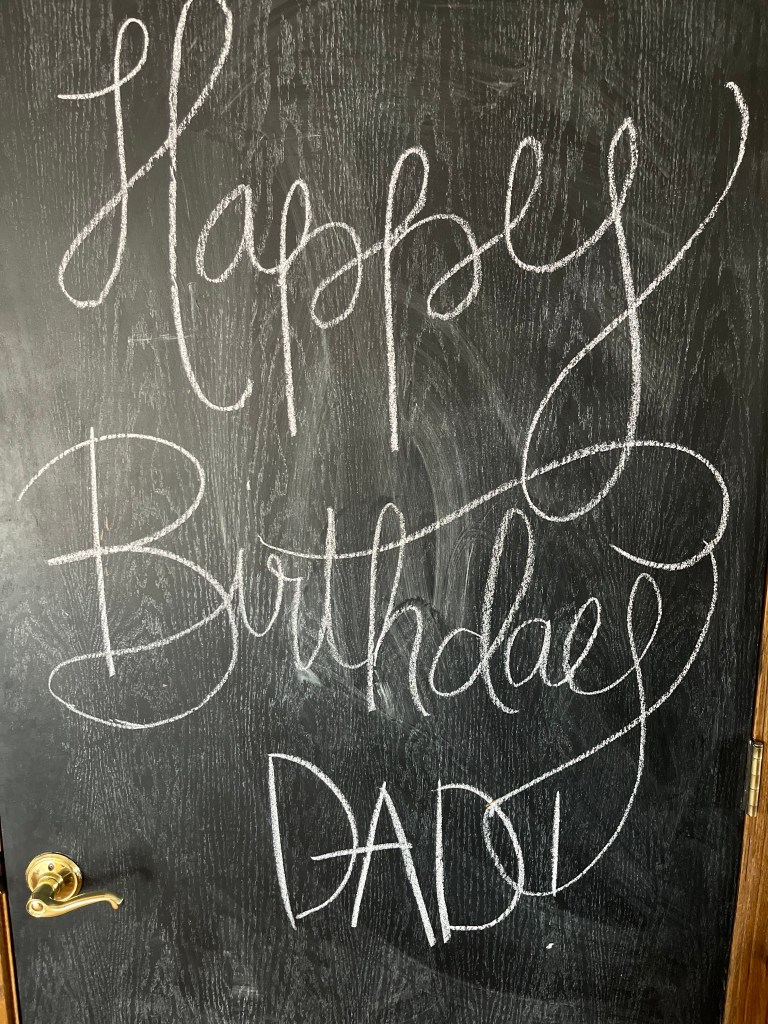 Happy
Birthday
DAD!